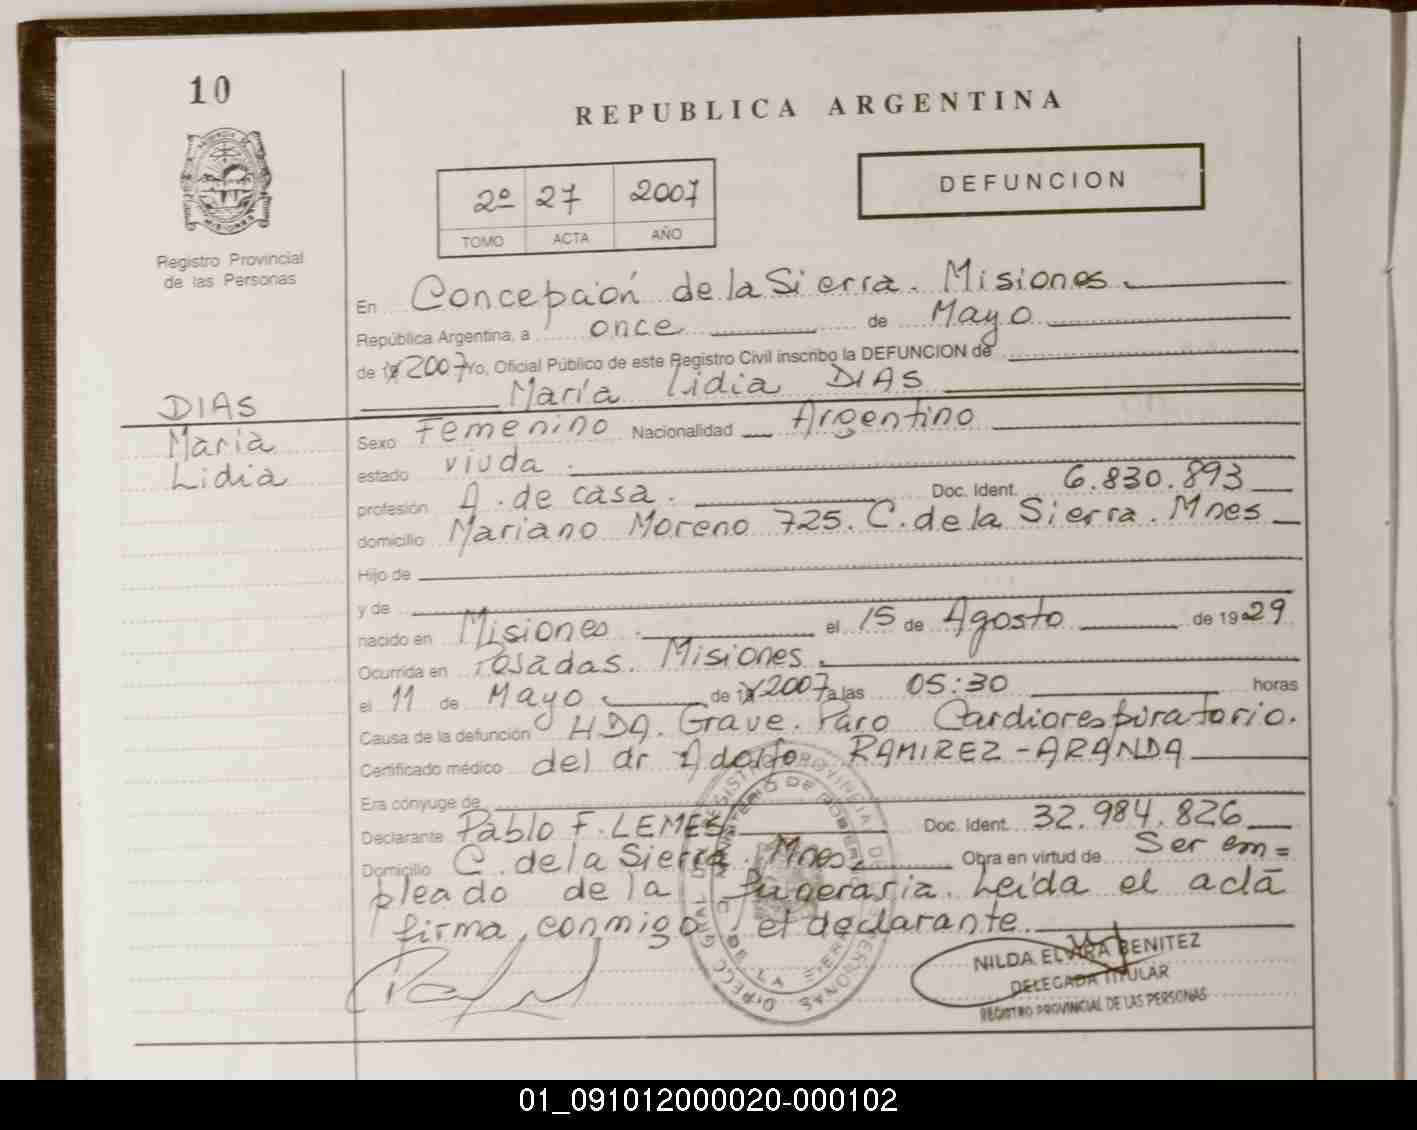 10
REPUBLICA ARGENTINA
2º 27 2007
TOMO ACTA AÑO
DEFUNCION
Registro Provincial
de las Personas
En Concepción de la Sierra. Misiones
República Argentina, a once de Mayo
de 2007 Yo, Oficial Público de este Registro Civil inscribo la DEFUNCION de
María Lidia DIAS
DIAS
María
Lidia
Sexo Femenino Nacionalidad Argentino
estado viuda.
profesión A. de casa. Doc. Ident. 6.830.893
domicilio Mariano Moreno 725. C. de la Sierra. Mnes
Hijo de
y de
nacido en Misiones. el 15 de Agosto de 1929
Ocurrida en Posadas. Misiones.
el 11 de Mayo de 2007 a las 05:30 horas
Causa de la defunción HDA. Grave. Paro Cardiorespiratorio.
Certificado médico del dr Adolfo RAMIREZ-ARANDA
Era cónyuge de
Declarante Pablo F. LEMES Doc. Ident. 32.984.826
Domicilio C. de la Sierra. Mnes. Obra en virtud de Ser em=
pleado de la funeraria. Leída el acta
firma, conmigo, el declarante.
NILDA ELVIRA BENITEZ
DELEGADA TITULAR
REGISTRO PROVINCIAL DE LAS PERSONAS
01_091012000020-000102